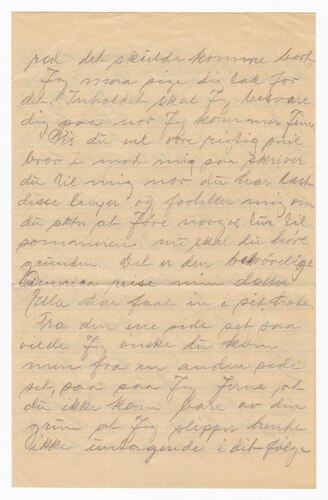 red det skulde komme bort.
Jeg maa sige dig tak for
det. Inholdet skal Jeg besvare
dig paa nor Jeg kommer jem
vis du vil være rigtig snil
bror i mod mig saa skriver
du til mig nor du har læst
disse linjer og forteller mig om
du akter at Jøre norges tur til
sommeren. nu skal du høre
grunden. Det er den bedrøvelige
America reise min datter
har faat in i sit
Fra den ene side set saa
vilde Jeg ønske du kom
men fra en anden side
set, saa Jeg at
du ikke kom bare av den
grun at Jeg slipper hende
ikke undtagende i dit følge